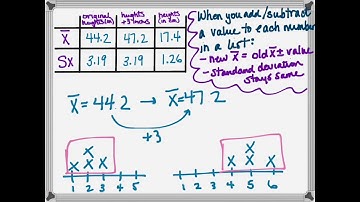 original heights (in) heights +3 inches heights (in ?)
X̄ 44.2 47.2 17.4
Sx 3.19 3.19 1.26
When you add/subtract
a value to each number
in a list:
- new X̄ = old X̄ ± value
- standard deviation
stays same
X̄ = 44.2 → X̄ = 47.2
+3
X X
X X X X X X
1 2 3 4 5 1 2 3 4 5 6